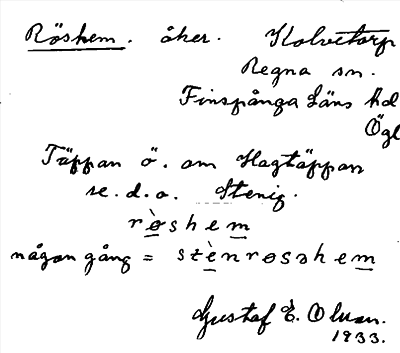 Röshem. åker. Kolvetorp
Regna sn.
Finspånga Läns hd
Ögl
Täppan ö. om Hagtäppan
se. d. o. Stenig.
rø̀shem
någon gång = stènrøsəhem
Gustaf E. Olsson.
1933.